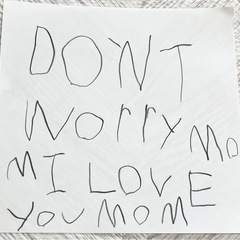 DON'T
Worry Mo
M I LOVE
You MOM